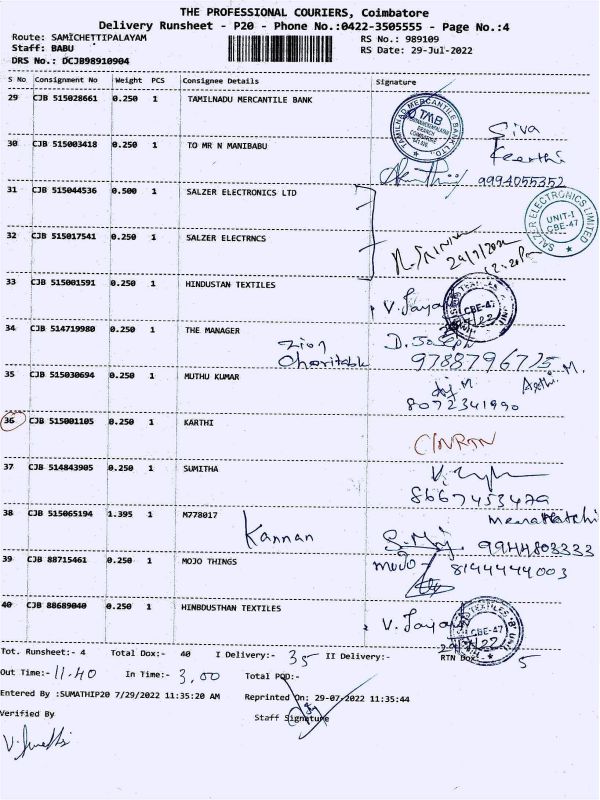 THE PROFESSIONAL COURIERS, Coimbatore
Delivery Runsheet - P20 - Phone No.:0422-3505555 - Page No.:4
Route: SAMICHETTIPALAYAM
RS No.: 989109
Staff: BABU
RS Date: 29-Jul-2022
DRS No.: DCJB98910904
S No Consignment No Weight PCS Consignee Details Signature
29 CJB 515028661 0.250 1 TAMILNADU MERCANTILE BANK
TAMILNAD MERCANTILE BANK LTD.
TMB
Siva
30 CJB 515003418 0.250 1 TO MR N MANIBABU
Keerthi
9994055352
31 CJB 515044536 0.500 1 SALZER ELECTRONICS LTD
SALZER ELECTRONICS LIMITED
UNIT-I
CBE-47
32 CJB 515017541 0.250 1 SALZER ELECTRNCS
12.20Pm
33 CJB 515001591 0.250 1 HINDUSTAN TEXTILES
V. Jaya
CBE-47
34 CJB 514719980 0.250 1 THE MANAGER
Zion
Charitable
D. Joseph
9788796775
35 CJB 515030694 0.250 1 MUTHU KUMAR
8072341990
36 CJB 515001105 0.250 1 KARTHI
37 CJB 514843905 0.250 1 SUMITHA
8667453479
38 CJB 515065194 1.395 1 M778017
Kannan
9944803333
39 CJB 88715461 0.250 1 MOJO THINGS
8144444003
40 CJB 88689040 0.250 1 HINBDUSTHAN TEXTILES
V. Jaya
CBE-47
Tot. Runsheet:- 4 Total Dox:- 40 I Delivery:- 35 II Delivery:- RTN Dox:- 5
Out Time:- 11.40 In Time:- 3.00 Total POD:-
Entered By :SUMATHIP20 7/29/2022 11:35:20 AM Reprinted On: 29-07-2022 11:35:44
Verified By
Staff Signature